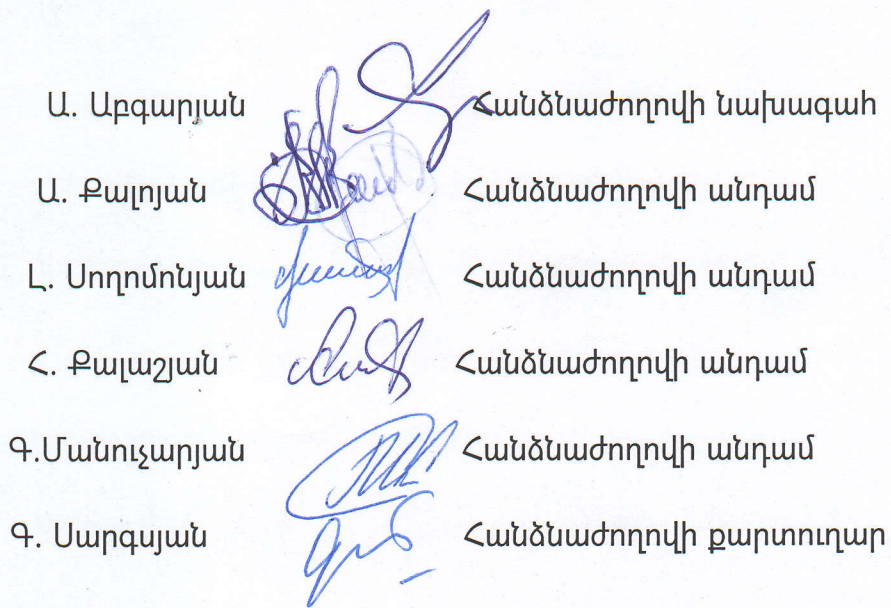 Ա. Աբգարյան Հանձնաժողովի նախագահ
Ա. Քալոյան Հանձնաժողովի անդամ
Լ. Սողոմոնյան Հանձնաժողովի անդամ
Հ. Քալաշյան Հանձնաժողովի անդամ
Գ.Մանուչարյան Հանձնաժողովի անդամ
Գ. Սարգսյան Հանձնաժողովի քարտուղար